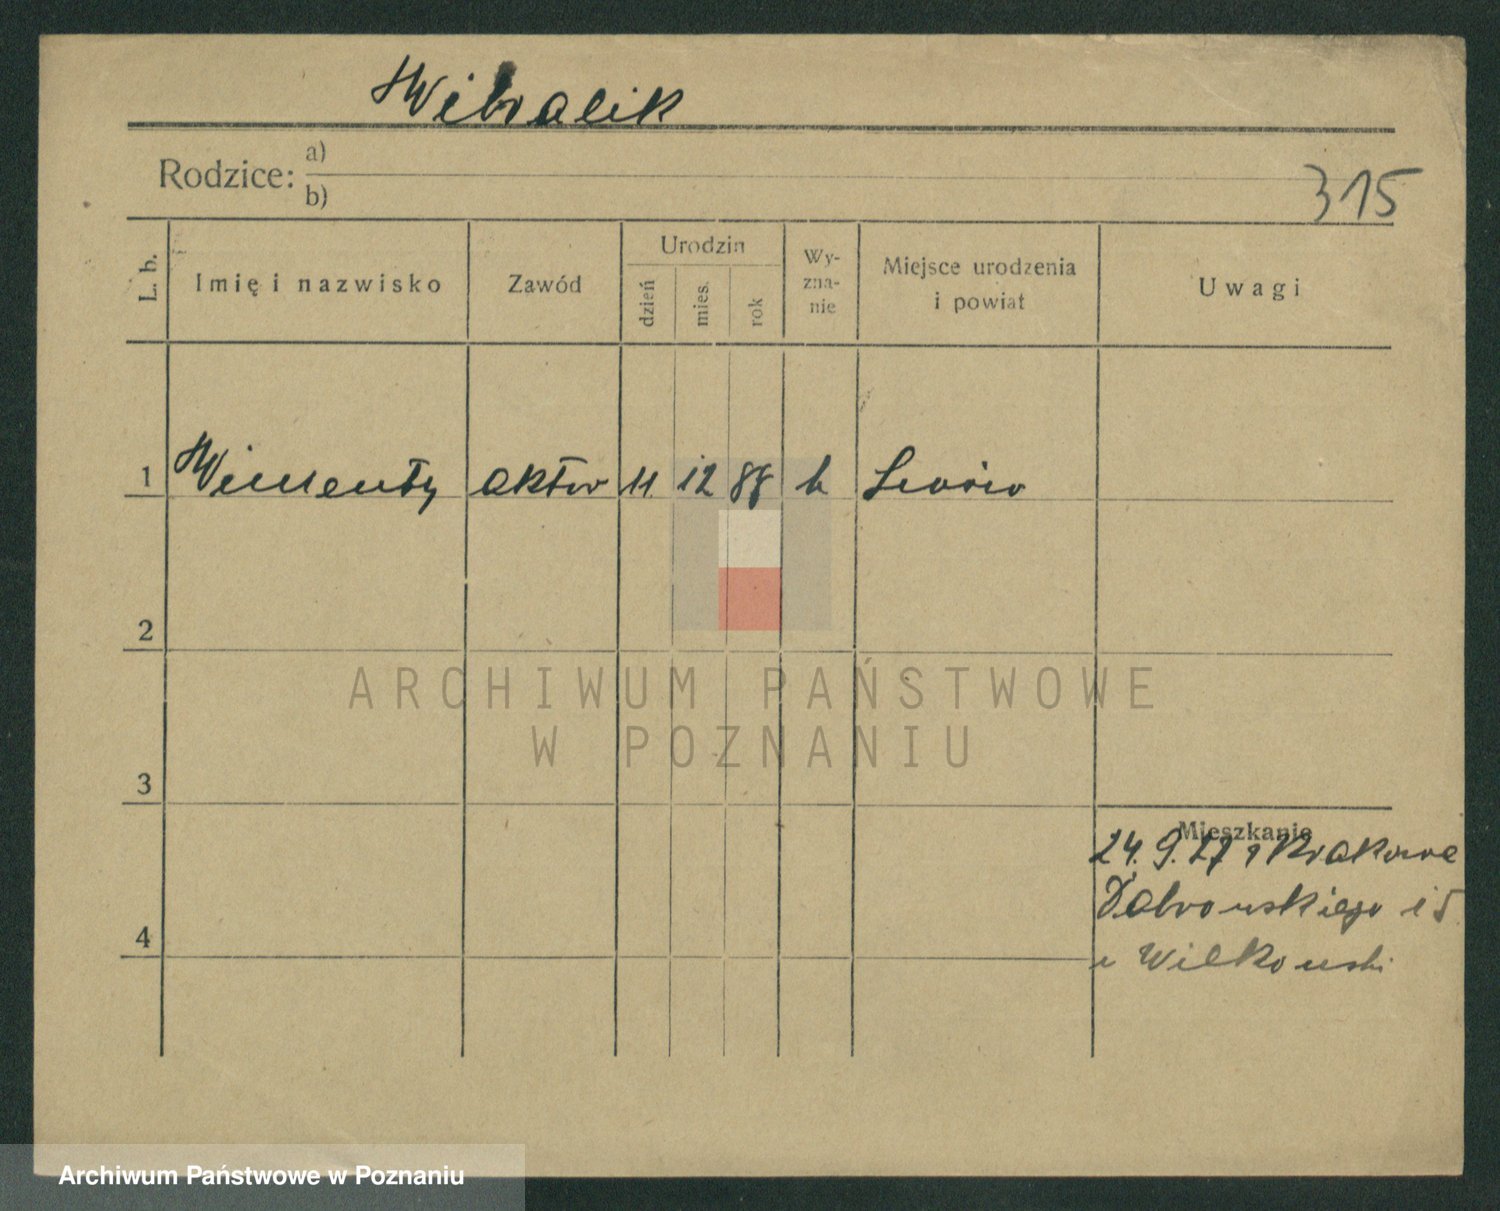 Wibralik
Rodzice: a)
b)
315
L. b. Imię i nazwisko Zawód Urodzin dzień mies. rok Wy-zna-nie Miejsce urodzenia i powiat Uwagi
1 Wincenty aktor 11 12 88 k Lwów
2
3
4
Mieszkanie
24. 9. 27 z Krakowa
Dąbrowskiego 15
u Wilkowski
ARCHIWUM PAŃSTWOWE
W POZNANIU
Archiwum Państwowe w Poznaniu